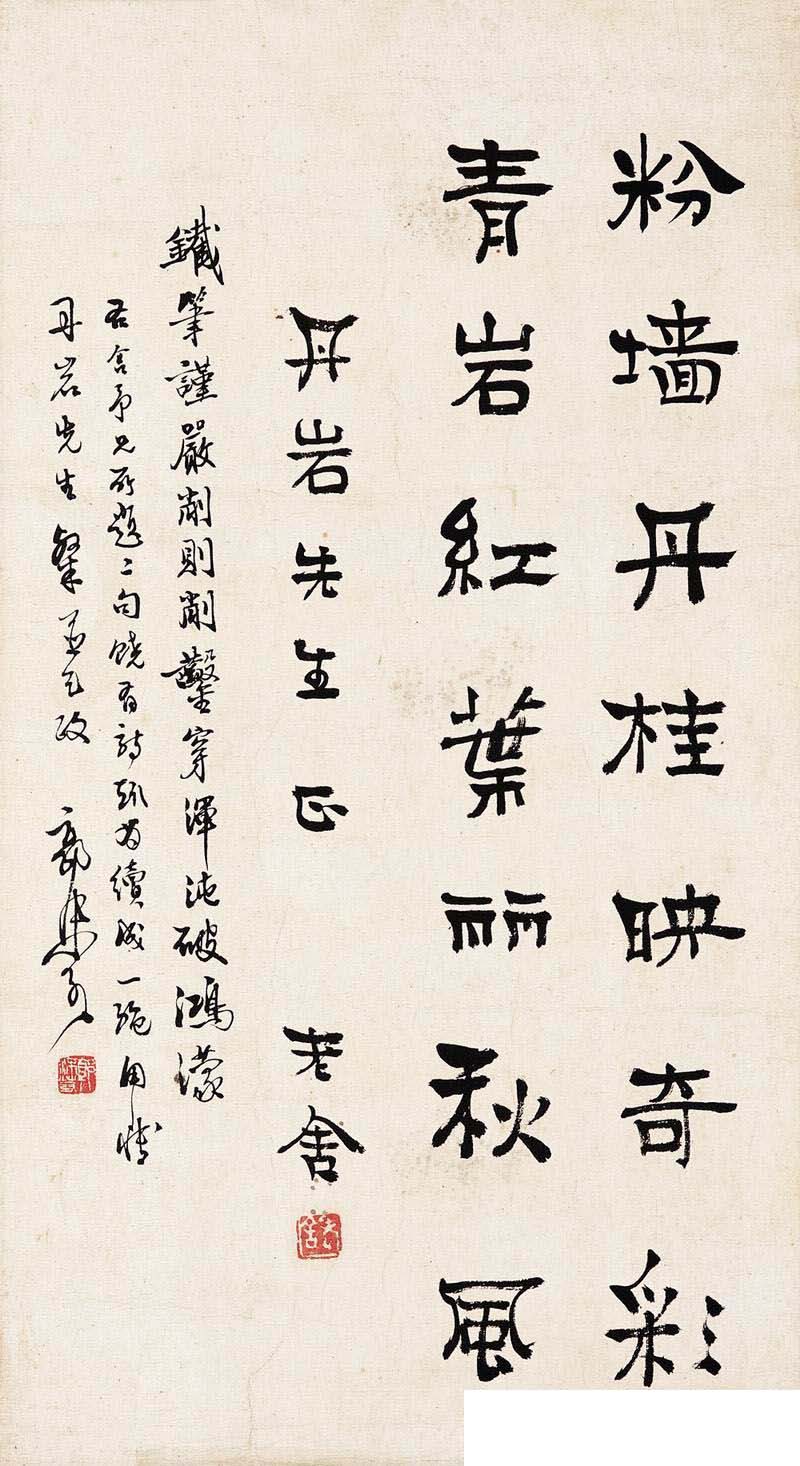 粉墙丹桂映奇彩
青岩紅葉丽秋風
丹岩先生正 老舍
老舍
鐵筆謹嚴削則削鑿穿渾沌破鴻濛
右舍予兄所題二句饒有詩趣為續成一絕用博
丹岩先生粲並乞政 郭沫若
郭沫若